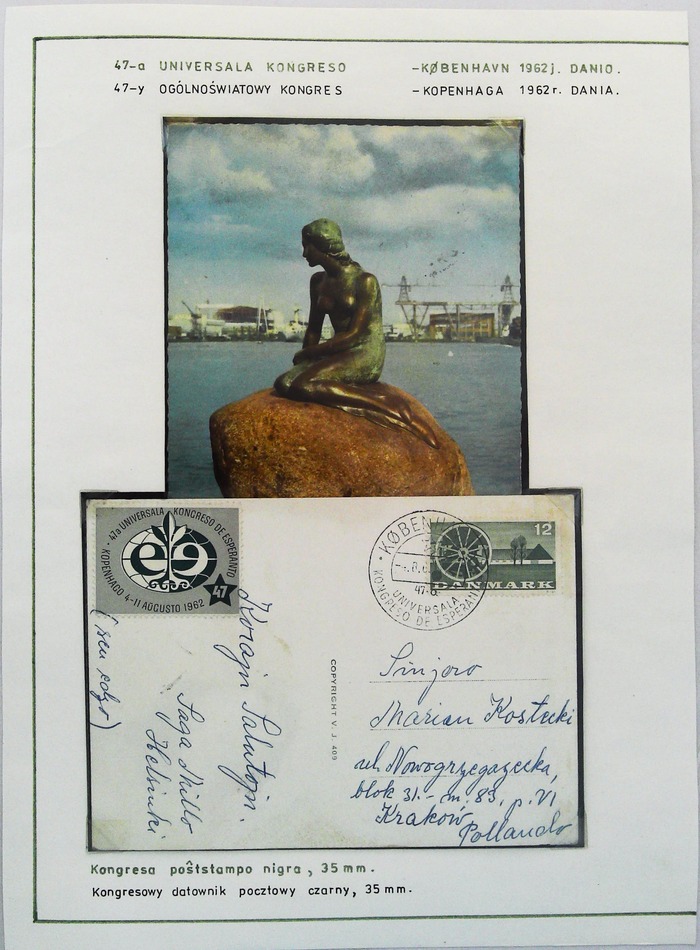 47-a UNIVERSALA KONGRESO -KØBENHAVN 1962j. DANIO.
47-y OGÓLNOŚWIATOWY KONGRES -KOPENHAGA 1962r. DANIA.
47a UNIVERSALA KONGRESO DE ESPERANTO
KOPENHAGO 4-11 AUGUSTO 1962
47
KØBENH
UNIVERSALA
KONGRESO DE ESPERANTO
12
DANMARK
(sen edzo)
Korajn Salutojn.
Saga
Helsinki
COPYRIGHT V. J. 409
Sinjoro
Marian Kostecki
ul. Nowogrzegozecka,
blok 31.- m. 83, p. VI
Kraków
Pollando
Kongresa poŝtstampo nigra, 35 mm.
Kongresowy datownik pocztowy czarny, 35 mm.